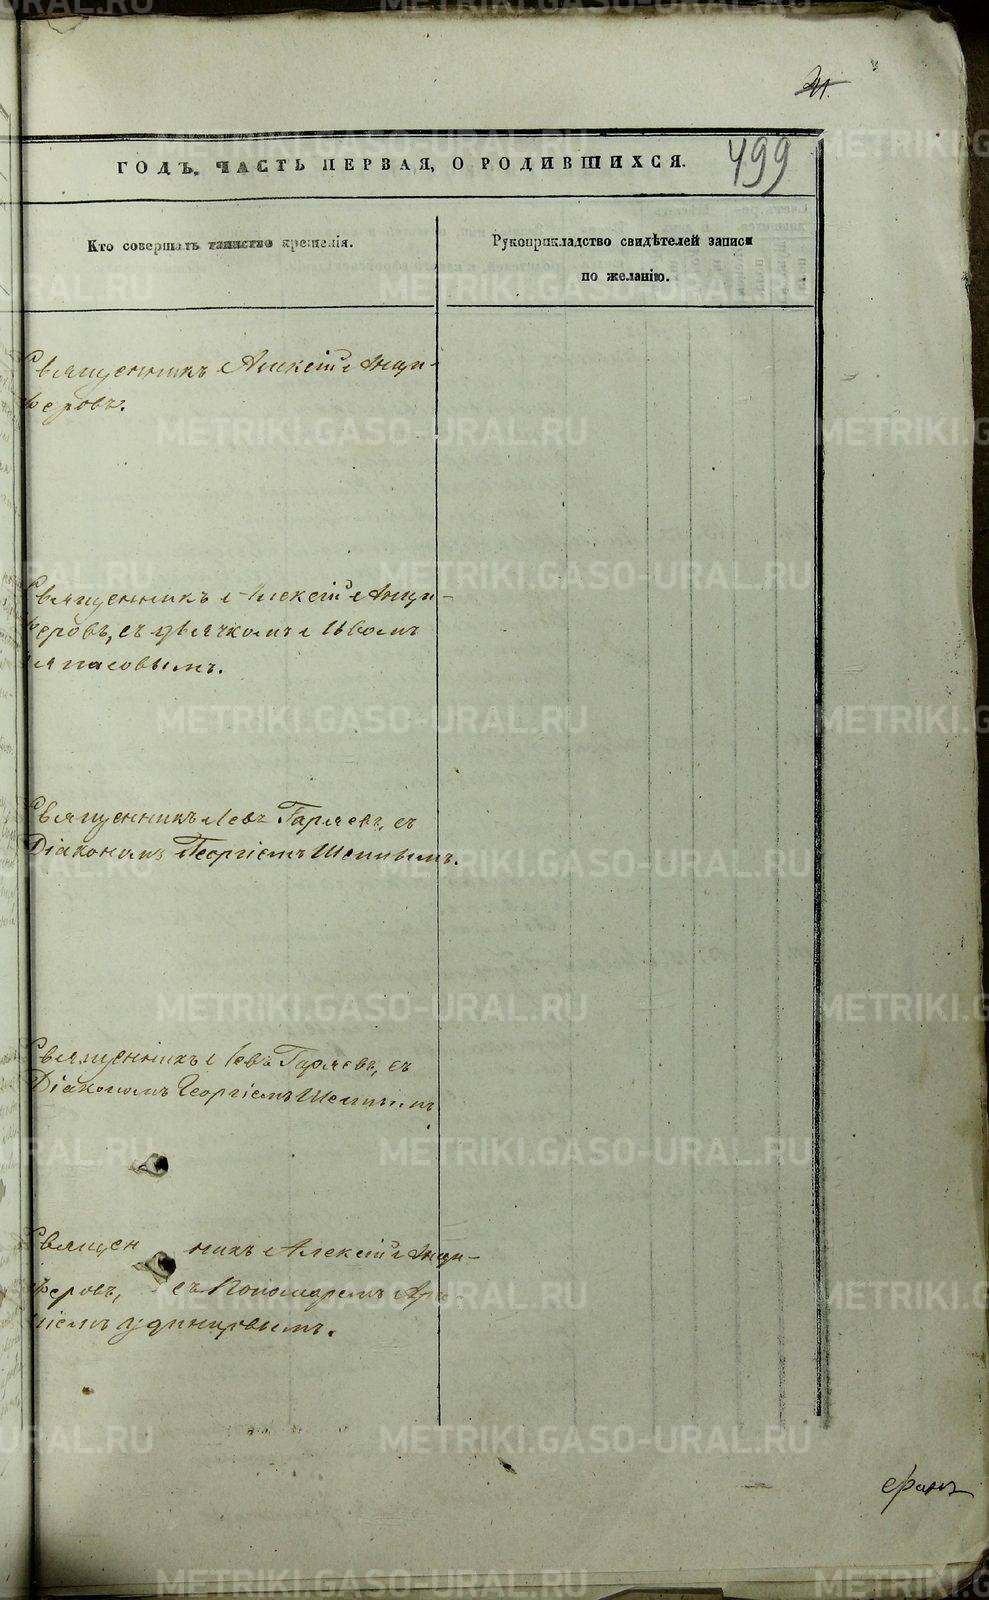 21.
499
ГОДЪ. ЧАСТЬ ПЕРВАЯ, О РОДИВШИХСЯ.
Кто совершалъ таинство крещенія.
Рукоприкладство свидѣтелей записи
по желанію.
Священникъ Алексій Анци-
феровъ.
Священникъ Алексій Анци-
феровъ, съ дьячкомъ Львомъ
Священникъ Левъ Гаряевъ, съ
Діакономъ Георгіемъ
Священникъ Левъ Гаряевъ, съ
Діакономъ Георгіемъ
Священникъ Алексій Анци-
феровъ, съ Пономаремъ
Удинцовымъ.
METRIKI.GASO-URAL.RU